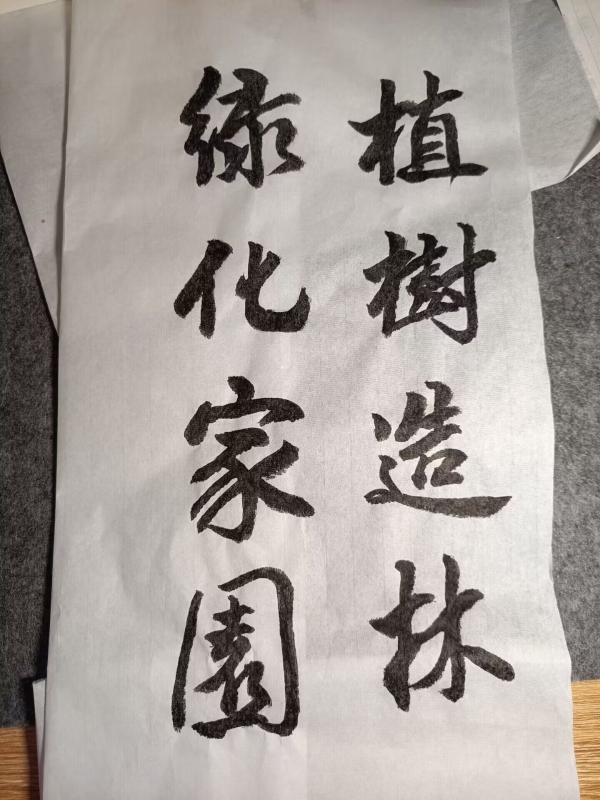 植樹造林
绿化家園